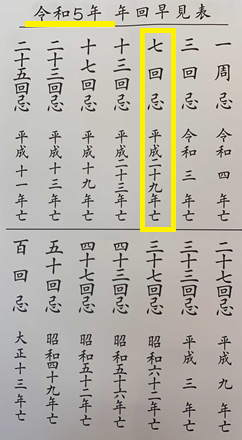 令和5年 年回早見表
一周忌 令和四年亡
三回忌 令和三年亡
七回忌 平成二十九年亡
十三回忌 平成二十三年亡
十七回忌 平成十九年亡
二十三回忌 平成十三年亡
二十五回忌 平成十一年亡
二十七回忌 平成九年亡
三十三回忌 平成三年亡
三十七回忌 昭和六十二年亡
四十三回忌 昭和五十六年亡
四十七回忌 昭和五十二年亡
五十回忌 昭和四十九年亡
百回忌 大正十三年亡